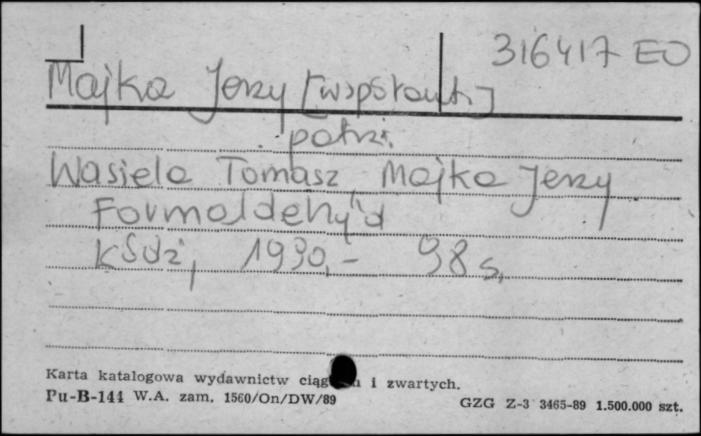 316417 EO
Majka Jerzy [współaut.]
patrz:
Wasiela Tomasz, Majka Jerzy
Formaldehyd
Łódź, 1990,- 98 s.
Karta katalogowa wydawnictw i zwartych.
Pu-B-144 W.A. zam. 1560/On/DW/89
GZG Z-3 3465-89 1.500.000 szt.